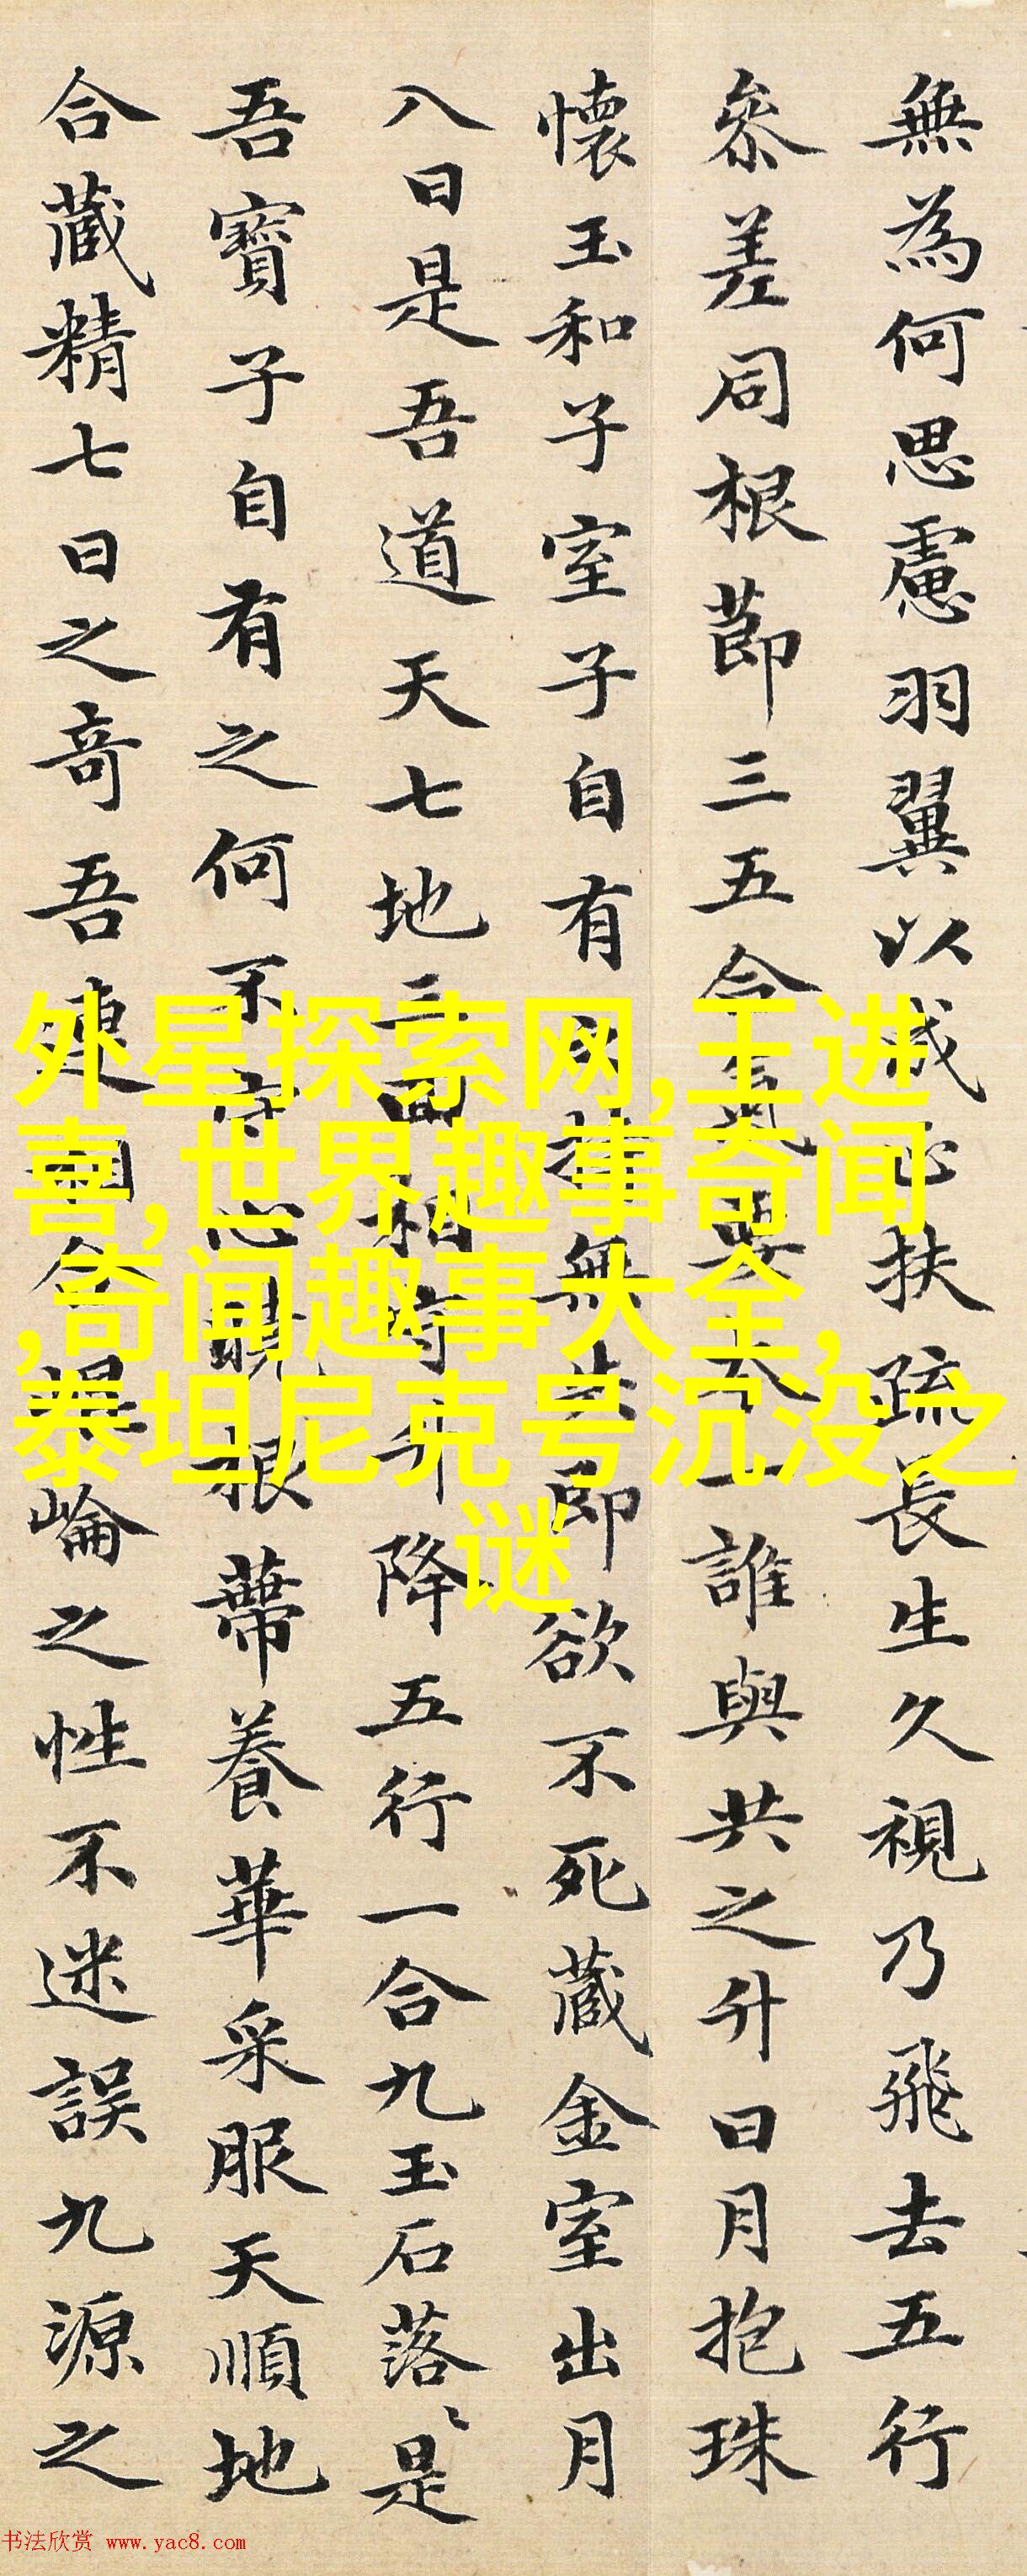 無為何思慮羽翼以成正扶疏長生久視乃飛去五行
參差同根節三五合氣要本一誰與共之升日月抱珠
懷玉和子室子自有之持無失即欲不死藏金室出月
入日是吾道天七地三回相守升降五行一合九玉石落〻是
吾寶子自有之何不守心曉根蒂養華采服天順地
合藏精七日之奇吾連相合崐崘之性不迷誤九源之
外星探索网,王进
喜,世界趣事奇闻
,奇闻趣事大全,
泰坦尼克号沉没之
谜
书法欣赏 www.yac8.com